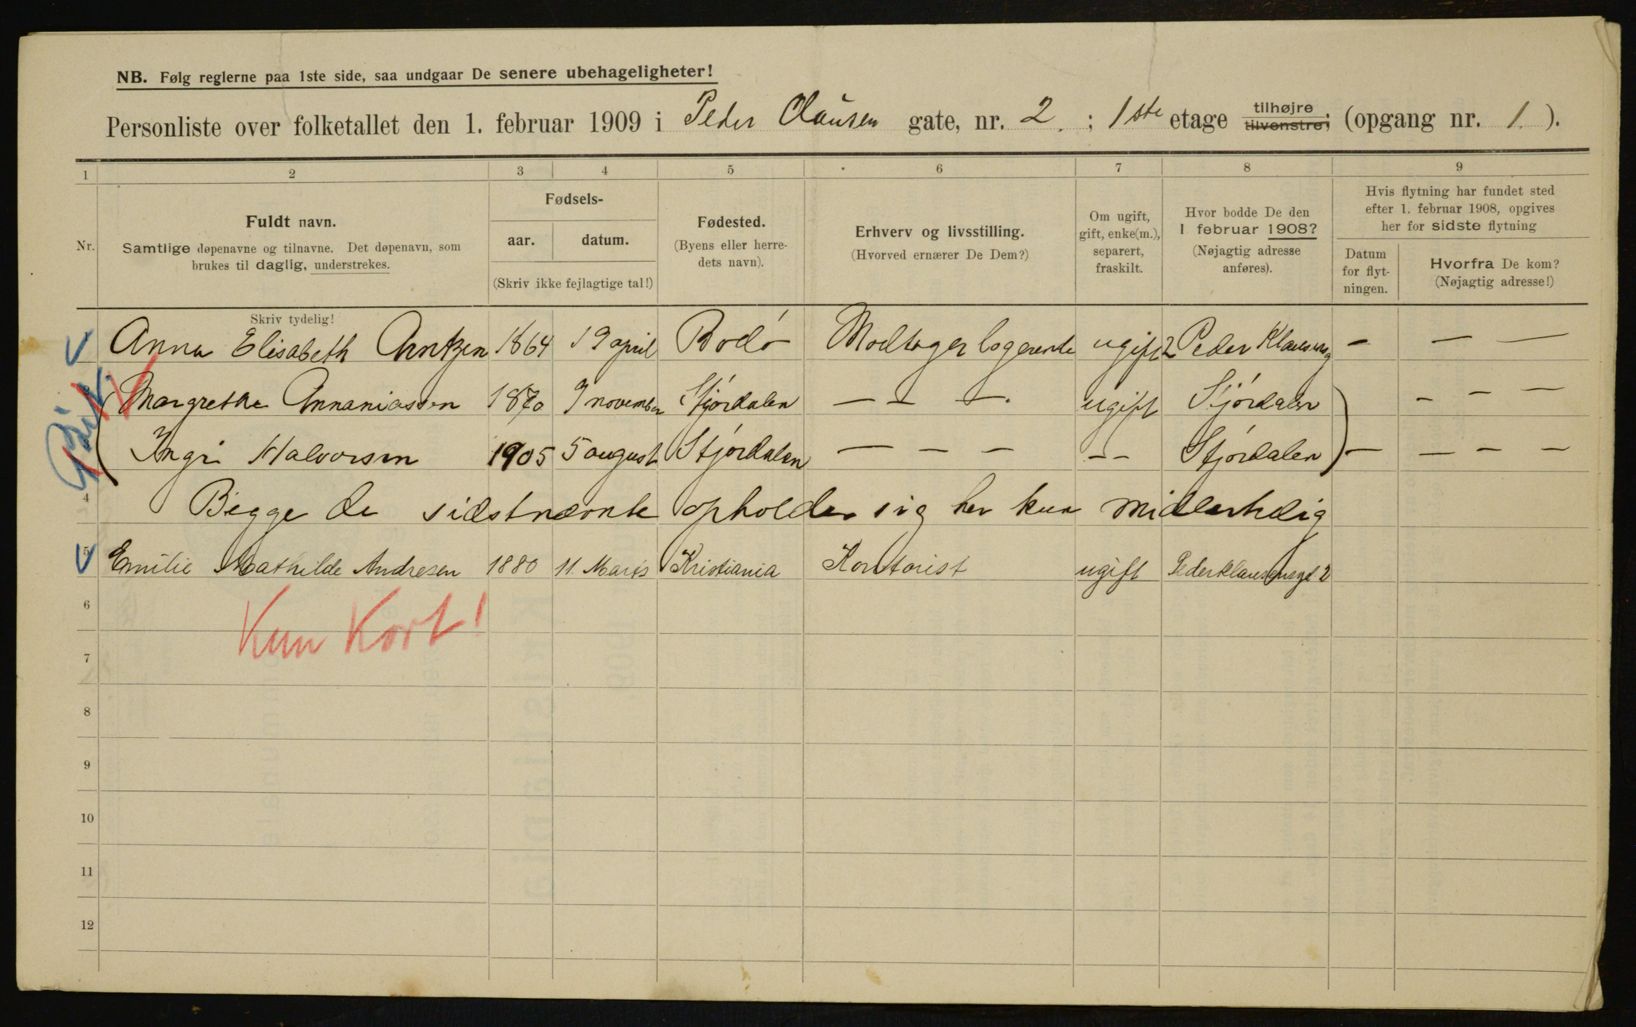 NB. Følg reglerne paa 1ste side, saa undgaar De senere ubehageligheter!
Personliste over folketallet den 1. februar 1909 i Peder Claüsen gate, nr. 2. ; 1ste etage tilhøjre tilvenstre; (opgang nr. 1. ).
1 2 3 4 5 6 7 8 9
Nr.
Fuldt navn.
Samtlige døpenavne og tilnavne. Det døpenavn, som
brukes til daglig, understrekes.
Skriv tydelig!
Fødsels-
aar. datum.
(Skriv ikke fejlagtige tal!)
Fødested.
(Byens eller herre-
dets navn).
Erhverv og livsstilling.
(Hvorved ernærer De Dem?)
Om ugift,
gift, enke(m.),
separert,
fraskilt.
Hvor bodde De den
1 februar 1908?
(Nøjagtig adresse
anføres).
Hvis flytning har fundet sted
efter 1. februar 1908, opgives
her for sidste flytning
Datum
for flyt-
ningen.
Hvorfra De kom?
(Nøjagtig adresse!)
Anna Elisabeth Arntzen 1864 19 april Bodó Modtager logerende ugift 2 Peder Klausensg - - -
Margrethe Annaniassen 1870 7 november Stjórdalen - - - ugift Stjórdalen - - -
Ingri Halvorsen 1905 5 august Stjórdalen - - - - - Stjórdalen - - - -
4 Begge de sidstnævnte opholder sig her kun midlertidig
5 Emilie Mathilde Andresen 1880 11 Marts Kristiania Kontorist ugift Pederklausensgt 2
6
Kun Kort!
7
8
9
10
11
12